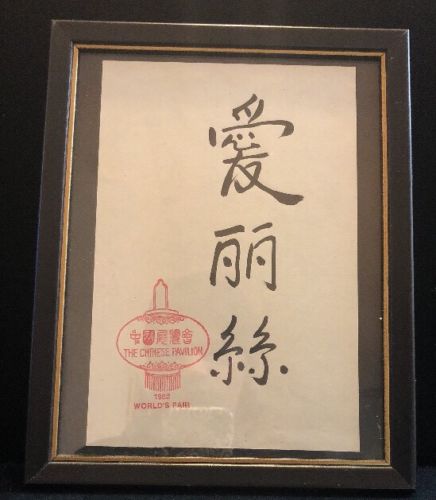 愛丽絲
中國展覽會
THE CHINESE PAVILION
1982
WORLD'S FAIR